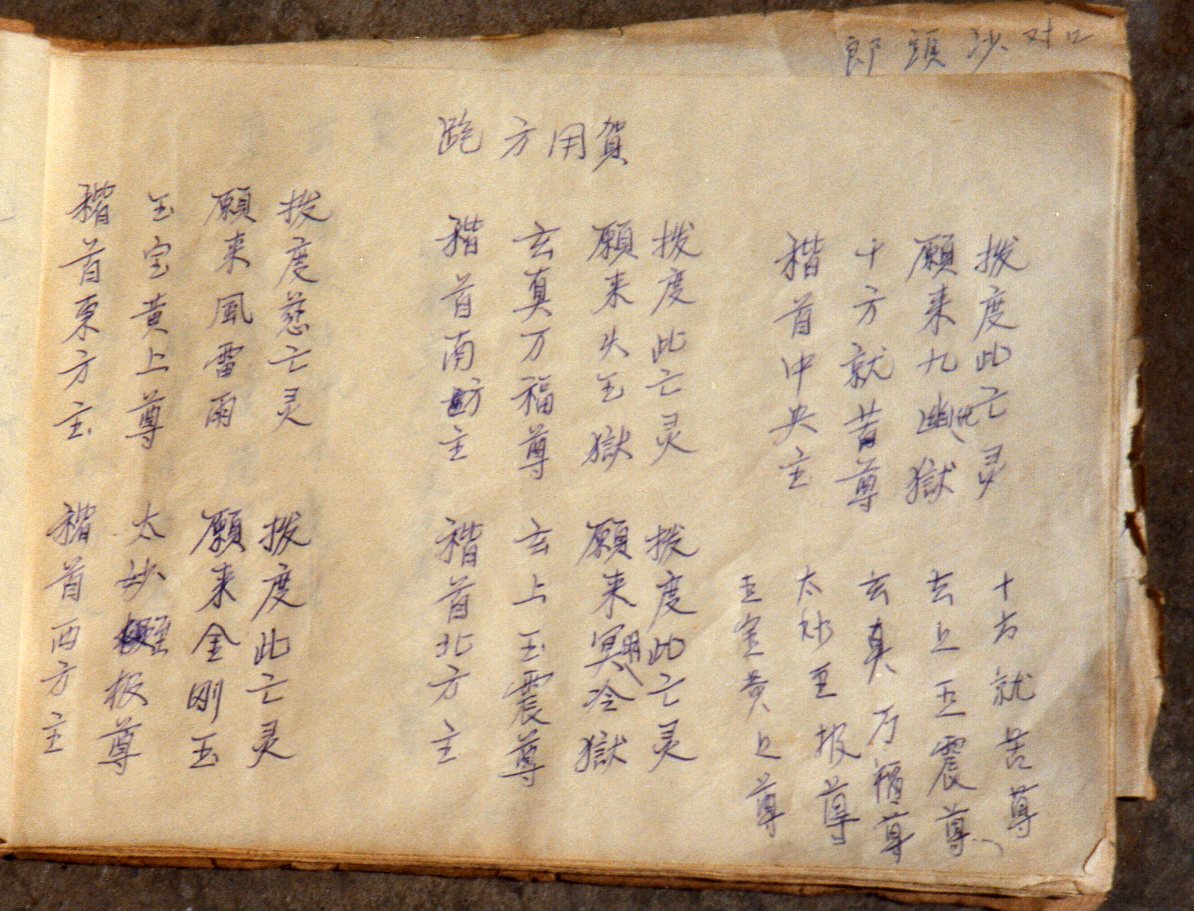 郎頭沙 对口
跑方用賀
稽首東方主
玉宝黄上尊
願来風雷雨
拨度慈亡灵
稽首西方主
太妙至板尊
願来金刚玉
拨度此亡灵
稽首南方主
玄真万福尊
願来火玉獄
拨度此亡灵
稽首北方主
玄上玉震尊
願来冥冷獄
拨度此亡灵
稽首中央主
十方就苦尊
願来九幽獄
拨度此亡灵
玉宝黄上尊
太妙至报尊
玄真万福尊
玄上玉震尊
十方就苦尊